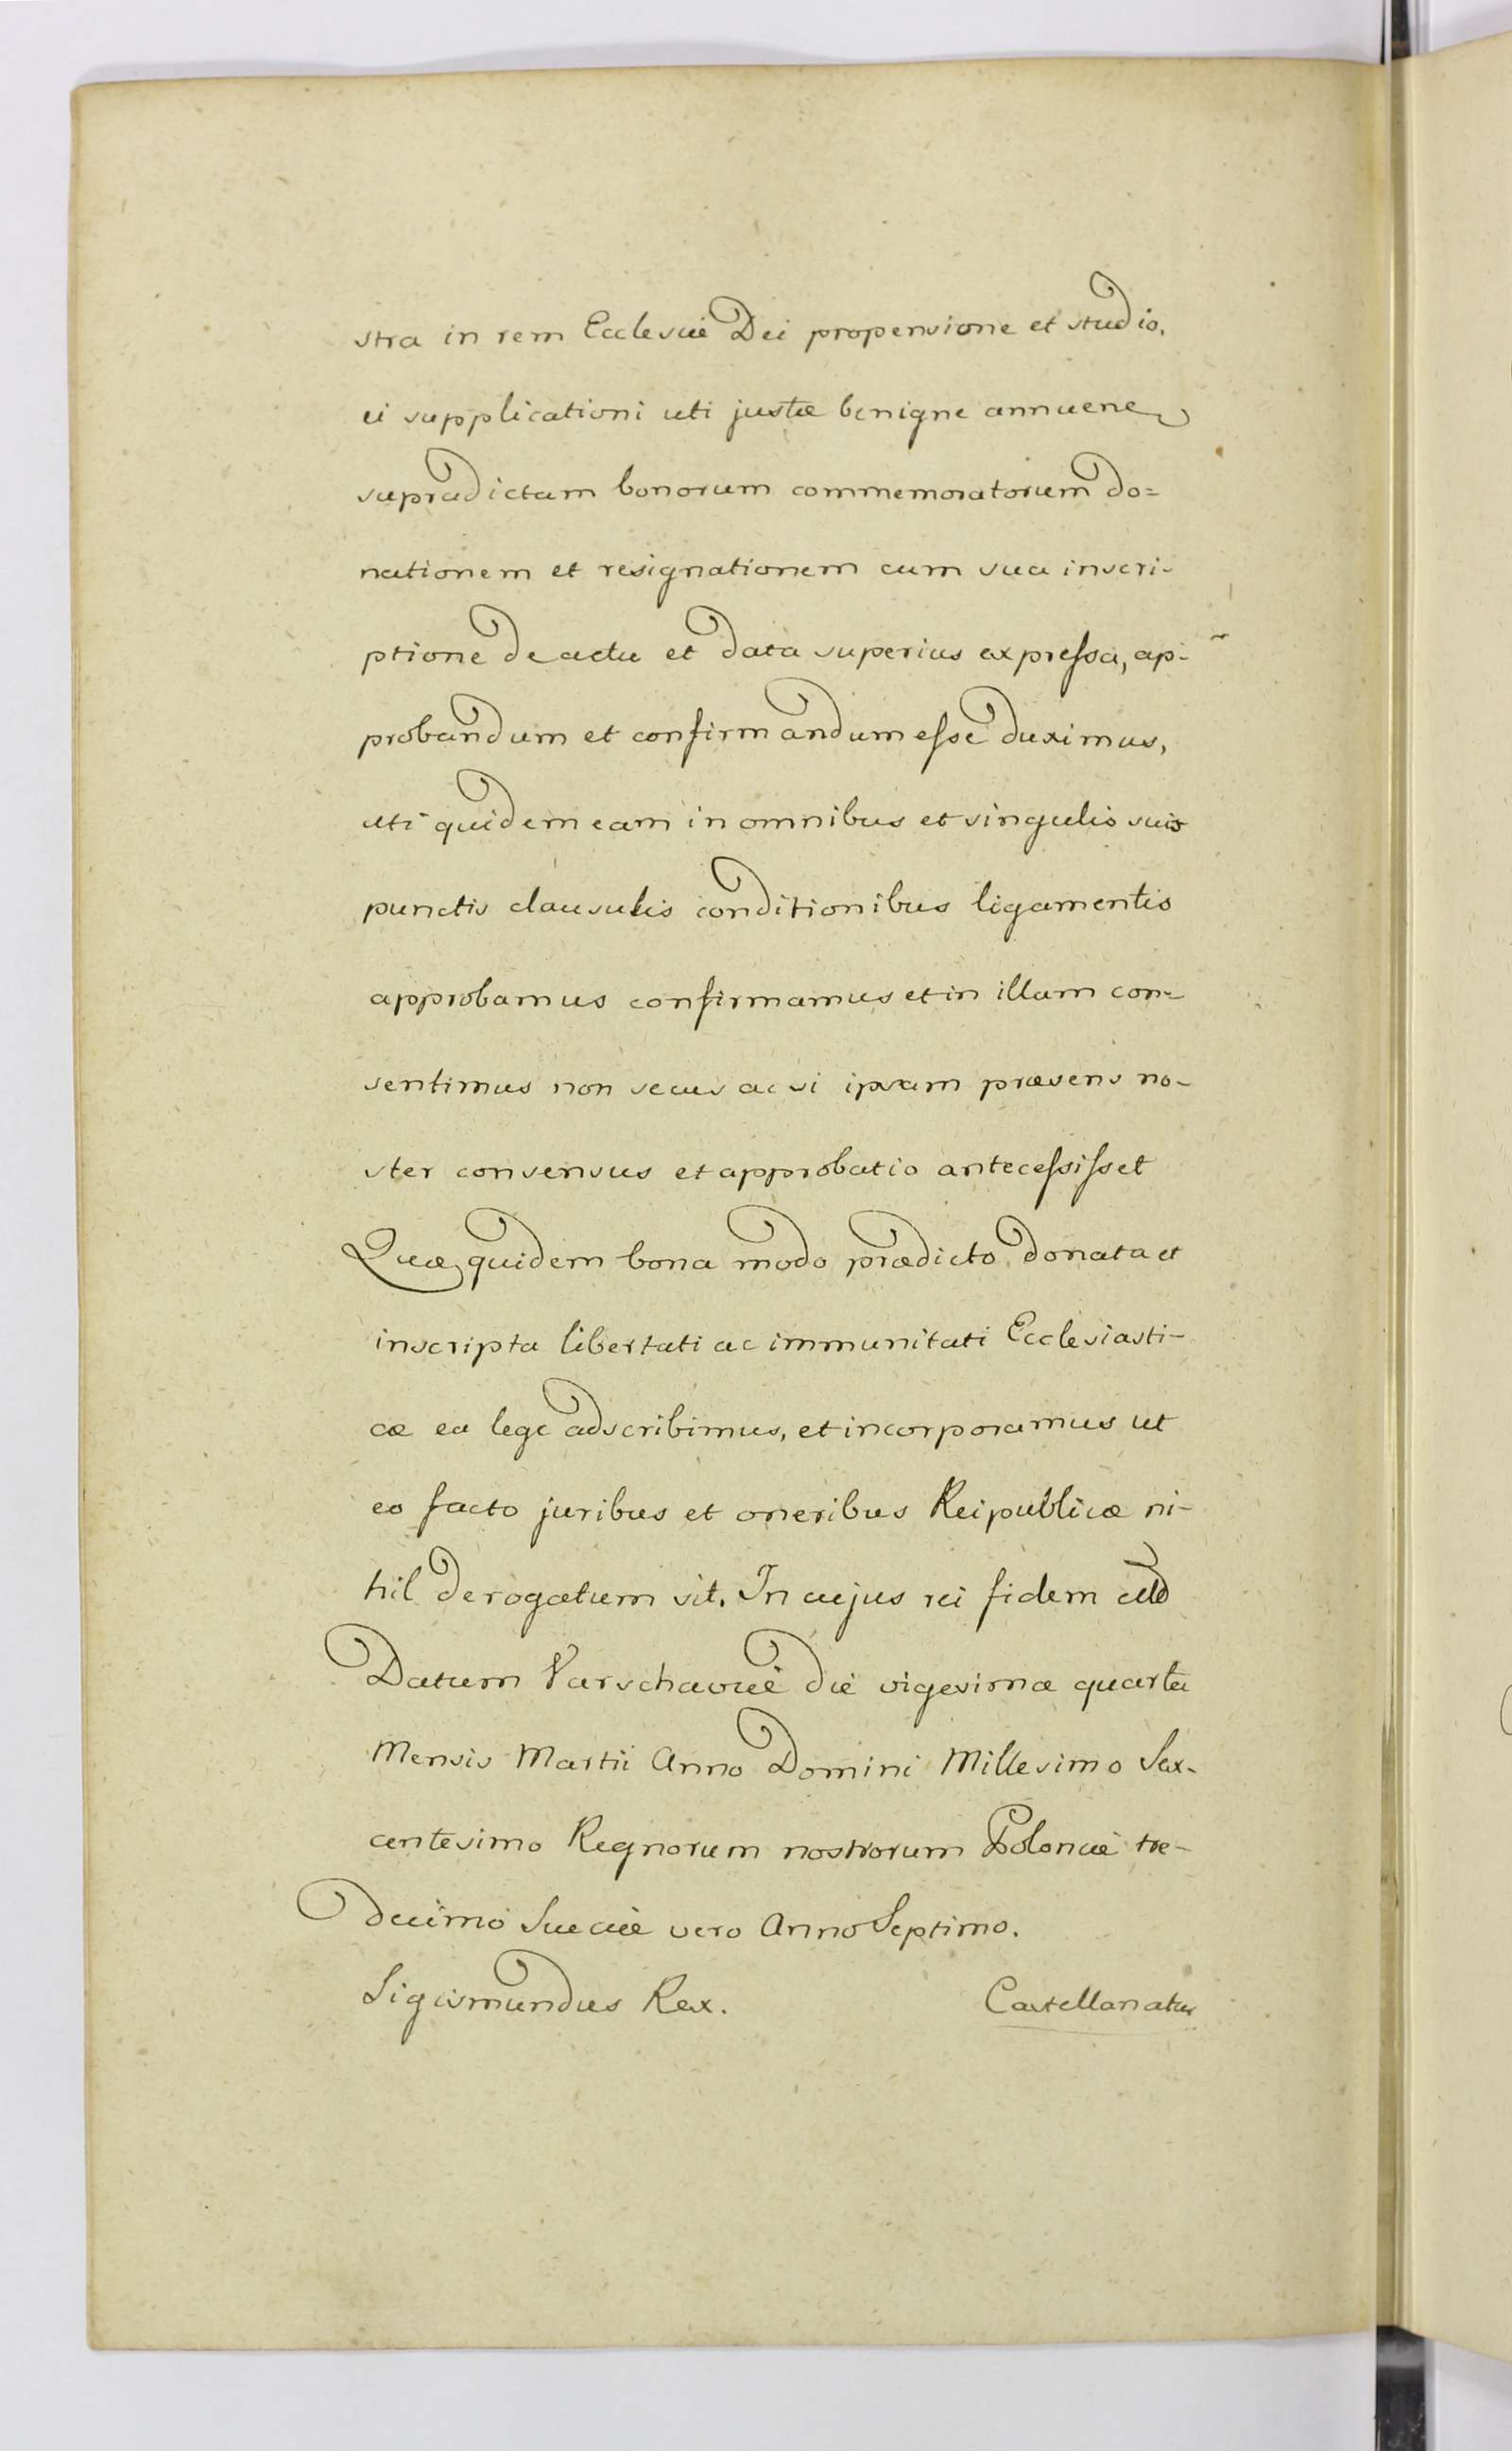 stra in rem Ecclesiæ Dei propensione et studio,
ei supplicationi uti justæ benigne annuene
supradictam bonorum commemoratorum do=
nationem et resignationem cum sua inscri-
ptione de actu et data superius expressa, ap-
probandum et confirmandum esse duximus,
uti quidem eam in omnibus et singulis suis
punctis clausulis conditionibus ligamentis
approbamus confirmamus et in illam con=
sentimus non secus ac si ipsam præsens no-
ster consensus et approbatio antecessisset
Quæ quidem bona modo prædicto donata et
inscripta libertati ac immunitati Ecclesiasti-
cæ ea lege adscribimus, et incorporamus ut
eo facto juribus et oneribus Reipublicæ ni-
hil derogatum sit. In cujus rei fidem
Datum Varschaviæ die vigesima quarta
Mensis Martii Anno Domini Millesimo Sex-
centesimo Regnorum nostrorum Poloniæ tre-
decimo Sueciæ vero Anno Septimo.
Sigismundus Rex. Castellanatus